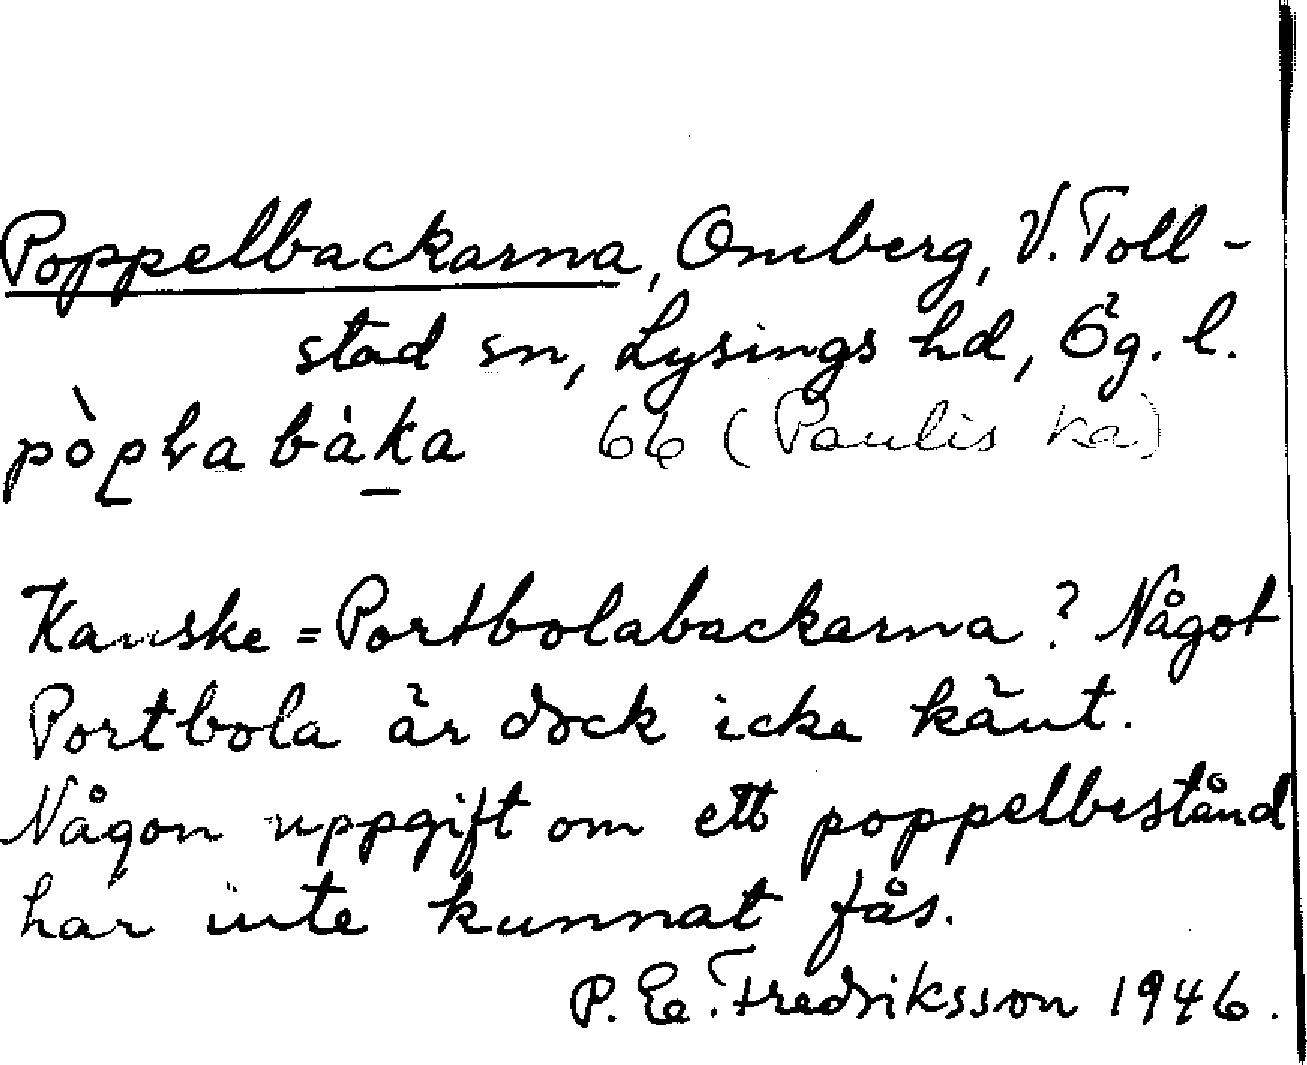 Poppelbackarna, Omberg, V. Toll-
stad sn, Lysings hd, Ög. l.
66 (Paulis ka)
Kanske = Portbolabackarna? Något
Portbola är dock icke känt.
Någon uppgift om ett poppelbestånd
har inte kunnat fås.
P. E. Fredriksson 1946.